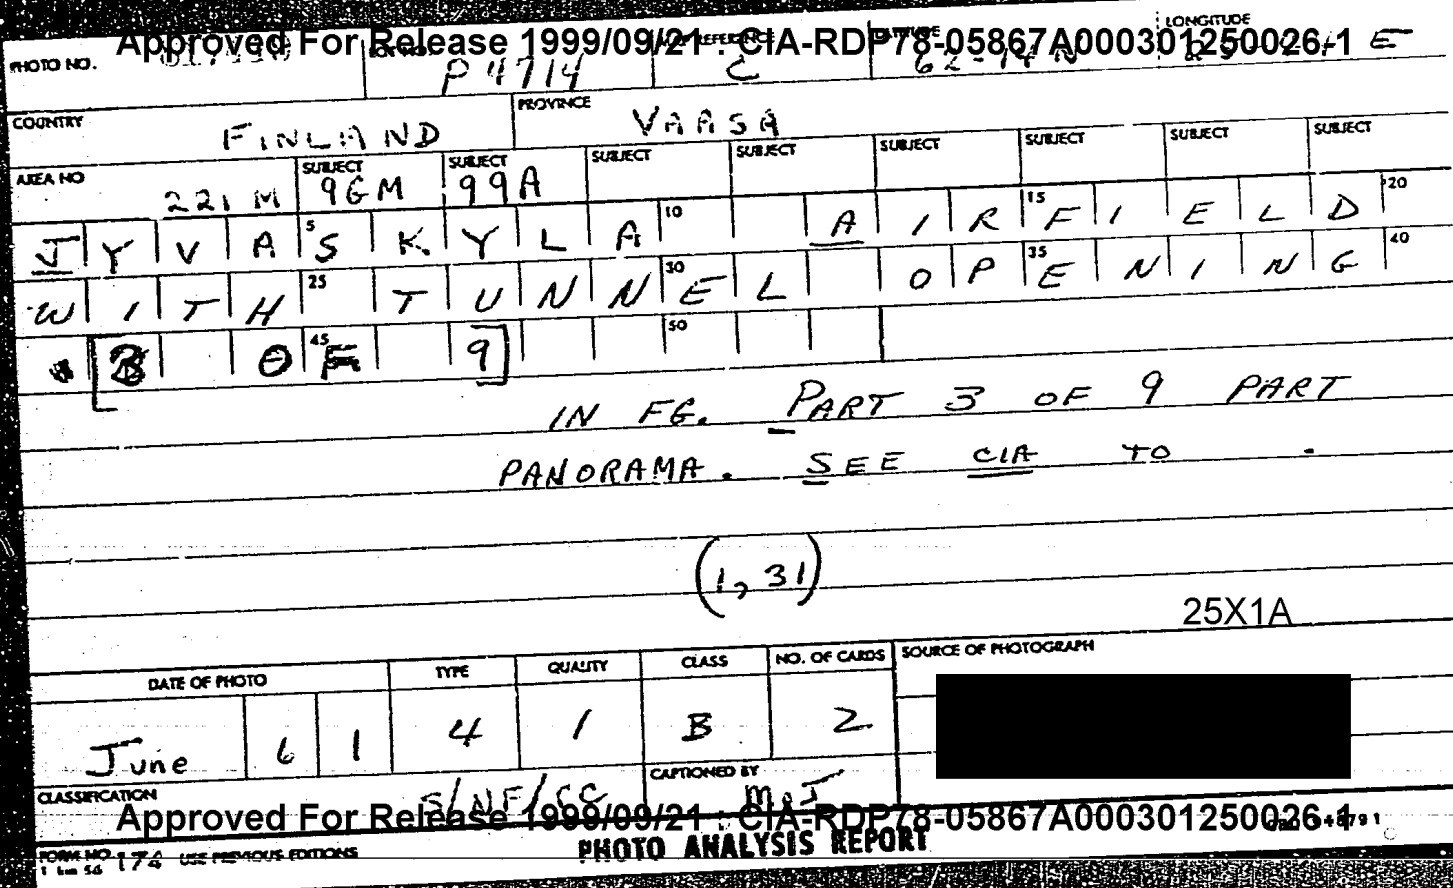 Approved For Release 1999/09/21 : CIA-RDP78-05867A000301250026-1
PHOTO NO. P 4714 REFERENCE C 62-14 N LONGITUDE E
COUNTRY FINLAND PROVINCE VAASA
AREA NO 221 M SUBJECT 9GM SUBJECT 99A SUBJECT SUBJECT SUBJECT SUBJECT SUBJECT SUBJECT
JYVASKYLA 5 10 AIRFIELD 15 20
WITH 25 TUNNEL 30 OPENING 35 40
[3 OF 9] 45 50
IN FG. PART 3 OF 9 PART
PANORAMA. SEE CIA TO .
(1, 31)
25X1A
DATE OF PHOTO TYPE QUALITY CLASS NO. OF CARDS SOURCE OF PHOTOGRAPH
June 6 1 4 1 B 2
CLASSIFICATION S/NF/CC CAPTIONED BY MOJ
Approved For Release 1999/09/21 : CIA-RDP78-05867A000301250026-1
FORM NO. 174 USE PREVIOUS EDITIONS PHOTO ANALYSIS REPORT